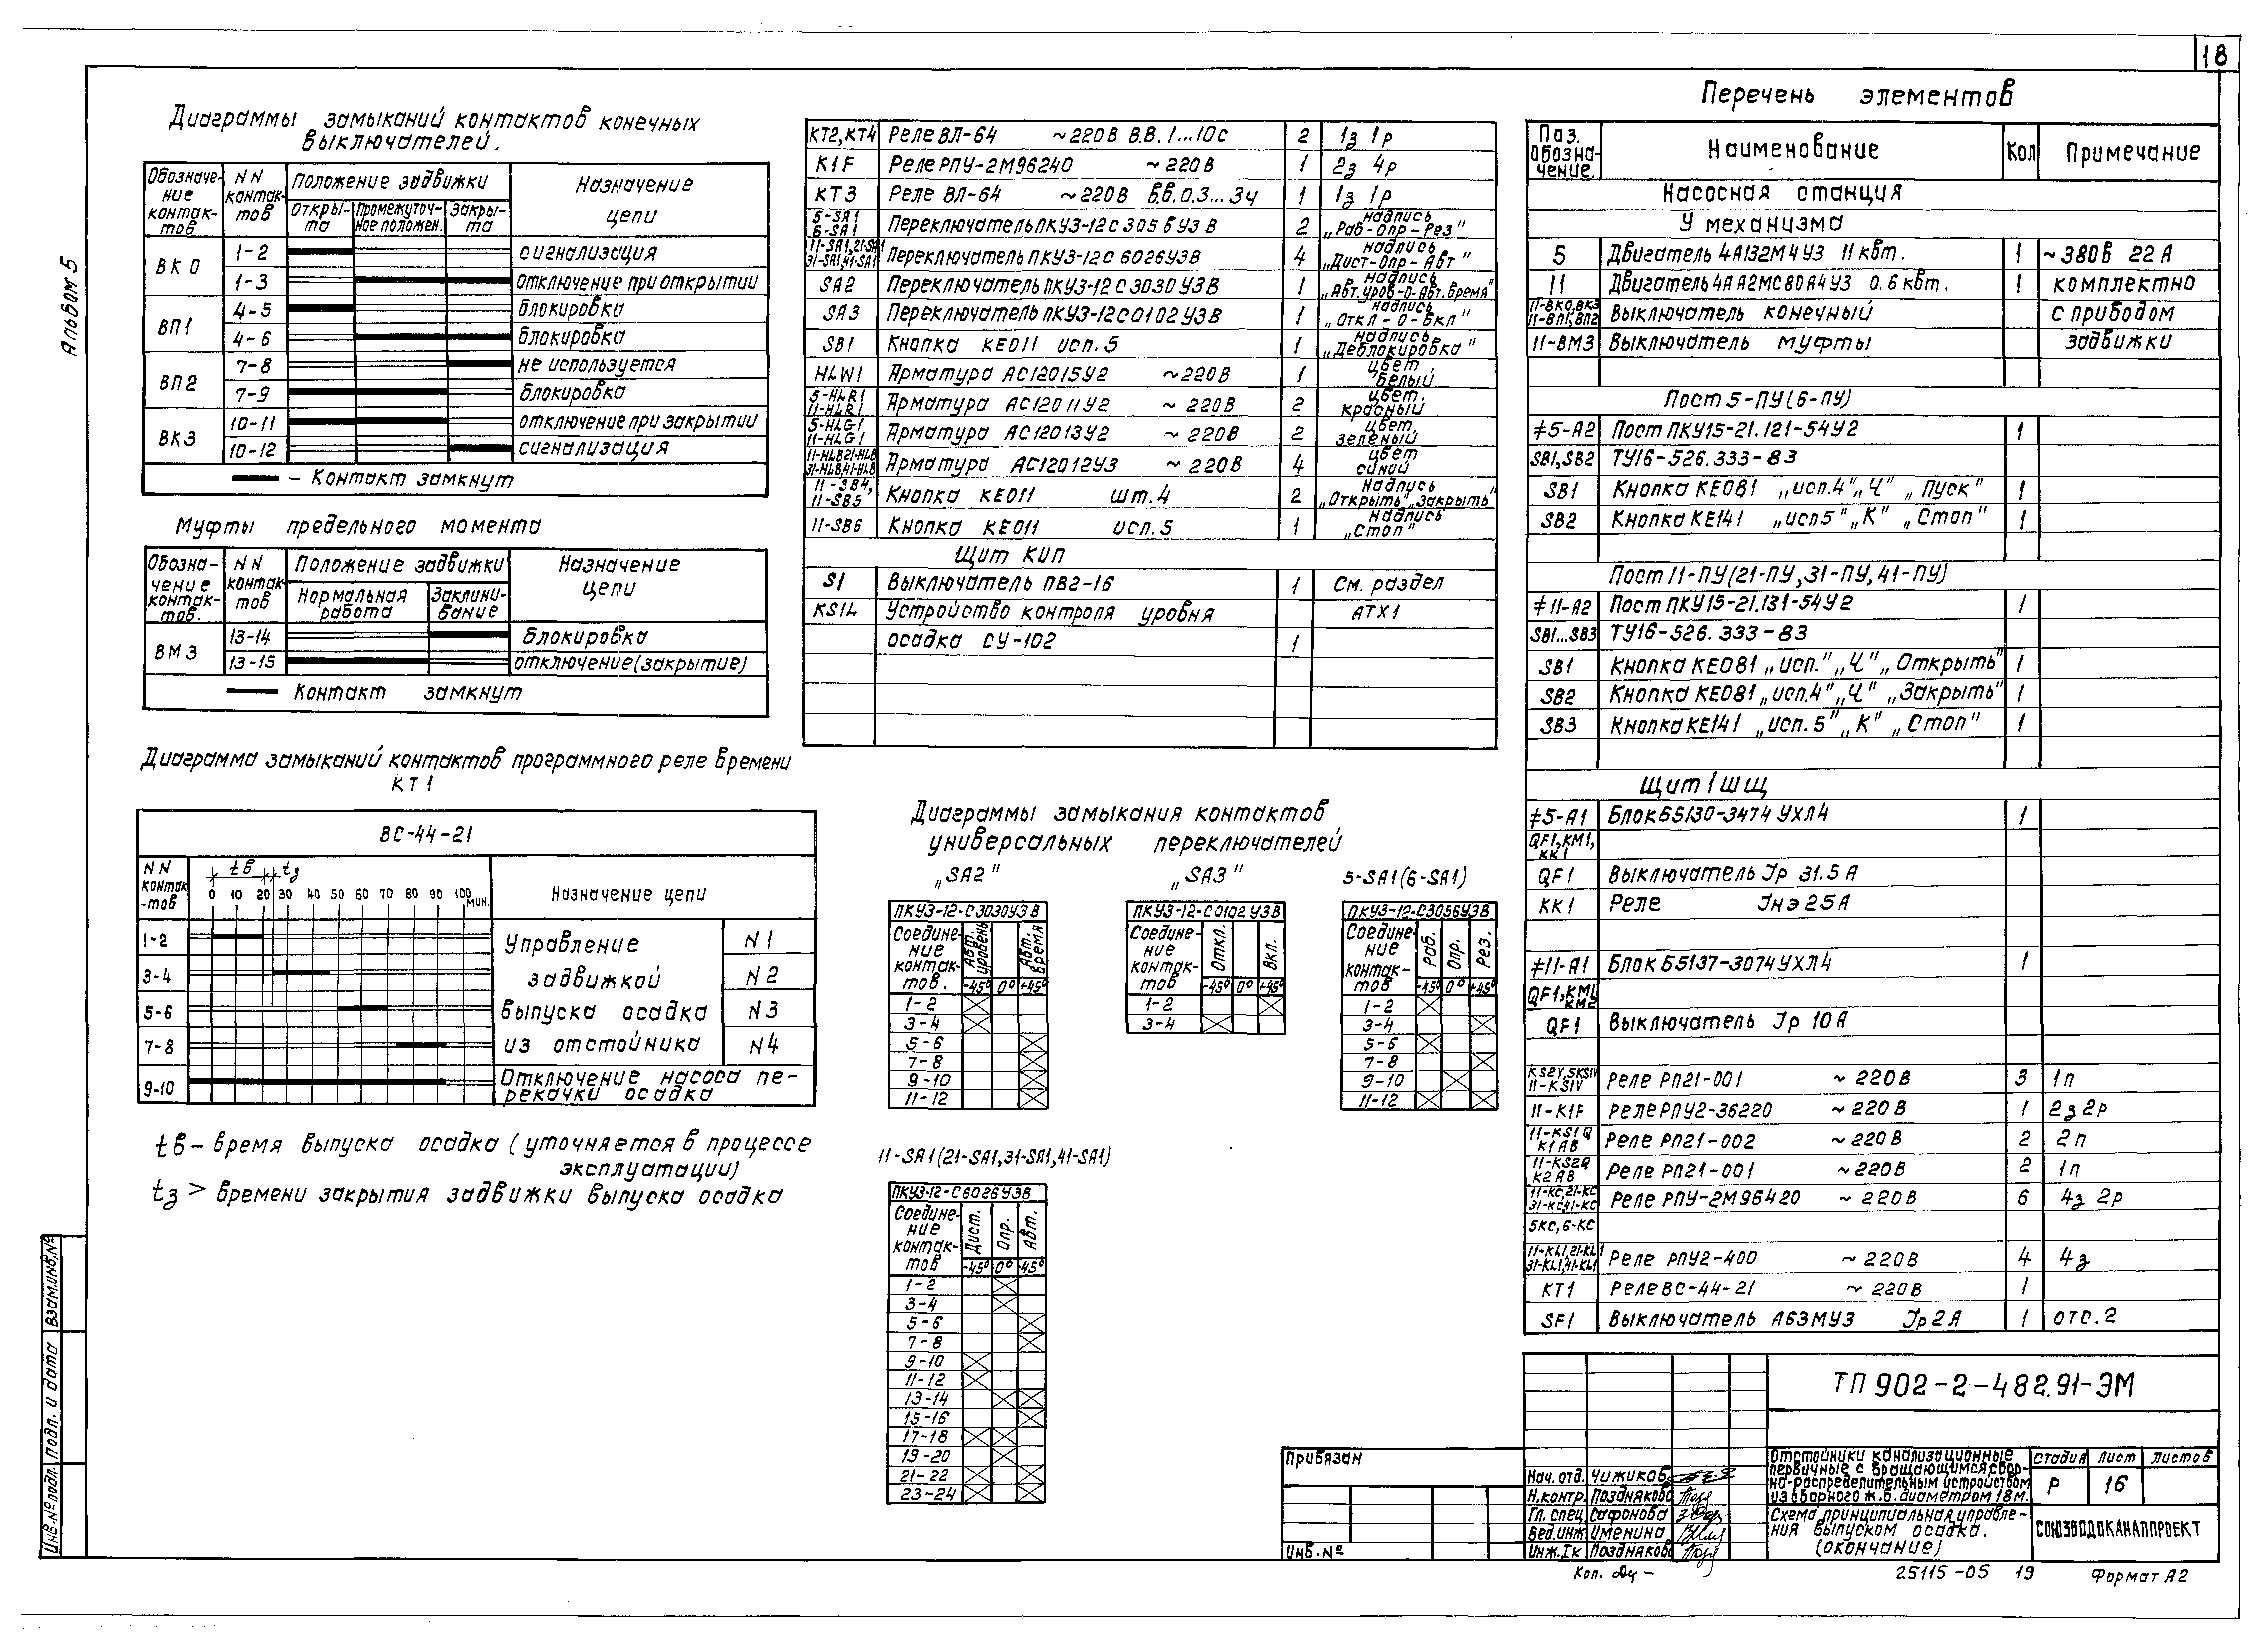 18
Альбом 5
Диаграммы замыканий контактов конечных
выключателей.
Обозначе-
ние
контак-
тов
NN
контак-
тов
Положение задвижки
Откры-
та
Промежуточ-
ное положен.
Закры-
та
Назначение
цепи
ВКО
1-2
сигнализация
1-3
отключение при открытии
ВП1
4-5
блокировка
4-6
блокировка
ВП2
7-8
не используется
7-9
блокировка
ВКЗ
10-11
отключение при закрытии
10-12
сигнализация
- Контакт замкнут
Муфты предельного момента
Обозна-
чение
контак-
тов.
NN
контак-
тов
Положение задвижки
Нормальная
работа
Заклини-
вание
Назначение
цепи
ВМЗ
13-14
блокировка
13-15
отключение (закрытие)
Контакт замкнут
Диаграмма замыканий контактов программного реле времени
КТ1
ВС-44-21
NN
контак
-тов
tв
tз
0 10 20 30 40 50 60 70 80 90 100 мин.
Назначение цепи
1-2
Управление
N1
3-4
задвижкой
N2
5-6
выпуска осадка
N3
7-8
из отстойника
N4
9-10
Отключение насоса пе-
рекачки осадка
tв – время выпуска осадка (уточняется в процессе
эксплуатации)
tз > времени закрытия задвижки выпуска осадка
КТ2,КТ4 Реле ВЛ-64 ~220В В.В. 1...10с 2 1з 1р
К1F Реле РПУ-2М96240 ~220В 1 2з 4р
КТ3 Реле ВЛ-64 ~220В В.В. 0.3...3ч 1 1з 1р
5-SA1
6-SA1
Переключатель ПКУ3-12С3056У3В 2 надпись
„Раб-Опр-Рез"
11-SA1,21-SA1
31-SA1,41-SA1
Переключатель ПКУ3-12С6026У3В 4 надпись
„Дист-Опр-Авт"
SA2 Переключатель ПКУ3-12С3030У3В 1 надпись
„Авт.уров-0-Авт.время"
SA3 Переключатель ПКУ3-12С0102У3В 1 надпись
„Откл-0-Вкл"
SB1 Кнопка КЕ011 исп.5 1 надпись
„Деблокировка"
HLW1 Арматура АС12015У2 ~220В 1 цвет
белый
5-HLR1
11-HLR1
Арматура АС12011У2 ~220В 2 цвет.
красный
5-HLG1
11-HLG1
Арматура АС12013У2 ~220В 2 цвет.
зеленый
11-HLB21-HLB
31-HLB,41-HLB
Арматура АС12012У3 ~220В 4 цвет
синий
11-SB4,
11-SB5
Кнопка КЕ011 шт.4 2 надпись
„Открыть" „Закрыть"
11-SB6 Кнопка КЕ011 исп.5 1 надпись
„Стоп"
Щит КИП
S1 Выключатель ПВ2-16 1 См. раздел
KS1L Устройство контроля уровня АТХ1
осадка СУ-102 1
Диаграммы замыкания контактов
универсальных переключателей
„SA2"
ПКУ3-12-С3030У3В
Соедине-
ние
контак-
тов.
Авт.
уровень
Авт.
время
-45° 0° +45°
1-2
3-4
5-6
7-8
9-10
11-12
„SA3"
ПКУ3-12-С0102У3В
Соедине-
ние
контак-
тов
Откл.
Вкл.
-45° 0° +45°
1-2
3-4
5-SA1(6-SA1)
ПКУ3-12-С3056У3В
Соедине-
ние
контак-
тов
Раб.
Опр.
Рез.
-45° 0° +45°
1-2
3-4
5-6
7-8
9-10
11-12
11-SA1(21-SA1,31-SA1,41-SA1)
ПКУ3-12-С6026У3В
Соедине-
ние
контак-
тов
Дист.
Опр.
Авт.
-45° 0° +45°
1-2
3-4
5-6
7-8
9-10
11-12
13-14
15-16
17-18
19-20
21-22
23-24
Перечень элементов
Поз.
Обозна-
чение.
Наименование
Кол
Примечание
Насосная станция
У механизма
5 Двигатель 4А132М4У3 11 квт. 1 ~380в 22А
11 Двигатель 4АА2МС80А4У3 0.6 квт. 1 комплектно
11-ВКО,ВКЗ
11-ВП1,ВП2
Выключатель конечный с приводом
11-ВМЗ Выключатель муфты задвижки
Пост 5-ПУ(6-ПУ)
≠5-А2 Пост ПКУ15-21.121-54У2 1
SB1,SB2 ТУ16-526.333-83
SB1 Кнопка КЕ081 „исп.4" „Ч" „Пуск" 1
SB2 Кнопка КЕ141 „исп5" „К" „Стоп" 1
Пост 11-ПУ(21-ПУ,31-ПУ,41-ПУ)
≠11-А2 Пост ПКУ15-21.131-54У2 1
SB1...SB3 ТУ16-526.333-83
SB1 Кнопка КЕ081 „исп." „Ч" „Открыть" 1
SB2 Кнопка КЕ081 „исп.4" „Ч" „Закрыть" 1
SB3 Кнопка КЕ141 „исп.5" „К" „Стоп" 1
Щит 1ШЩ
≠5-А1 Блок Б5130-3474УХЛ4 1
QF1,КМ1,
КК1
QF1 Выключатель Jр 31.5А
КК1 Реле Jнэ 25А
≠11-А1 Блок Б5137-3074УХЛ4 1
QF1,КМ1
КМ2
QF1 Выключатель Jр 10А
KS2V,5KS1V
11-KS1V
Реле РП21-001 ~220В 3 1п
11-К1F Реле РПУ2-36220 ~220В 1 2з 2р
11-KS1Q
К1АВ
Реле РП21-002 ~220В 2 2п
11-KS2Q
К2АВ
Реле РП21-001 ~220В 2 1п
11-КС,21-КС
31-КС,41-КС
Реле РПУ-2М96420 ~220В 6 4з 2р
5КС,6-КС
11-KL1,21-KL1
31-KL1,41-KL1
Реле РПУ2-400 ~220В 4 4з
КТ1 Реле ВС-44-21 ~220В 1
SF1 Выключатель А63МУ3 Jр2А 1 отс.2
ТП 902-2-482.91-ЭМ
Отстойники канализационные
первичные с вращающимся сбор-
но-распределительным устройством
из сборного ж.б. диаметром 18м.
Стадия Лист Листов
Р 16
Схема принципиальная управле-
ния выпуском осадка.
(окончание)
СОЮЗВОДОКАНАЛПРОЕКТ
Нач.отд. Чижиков
Н.контр. Позднякова
Гл.спец Сафонова
Вед.инж Именина
Инж.Iк Позднякова
Привязан
Инв.№
Взам.инв.№
Подп. и дата
Инв.№ подл.
Коп.
25115-05 19
Формат А2